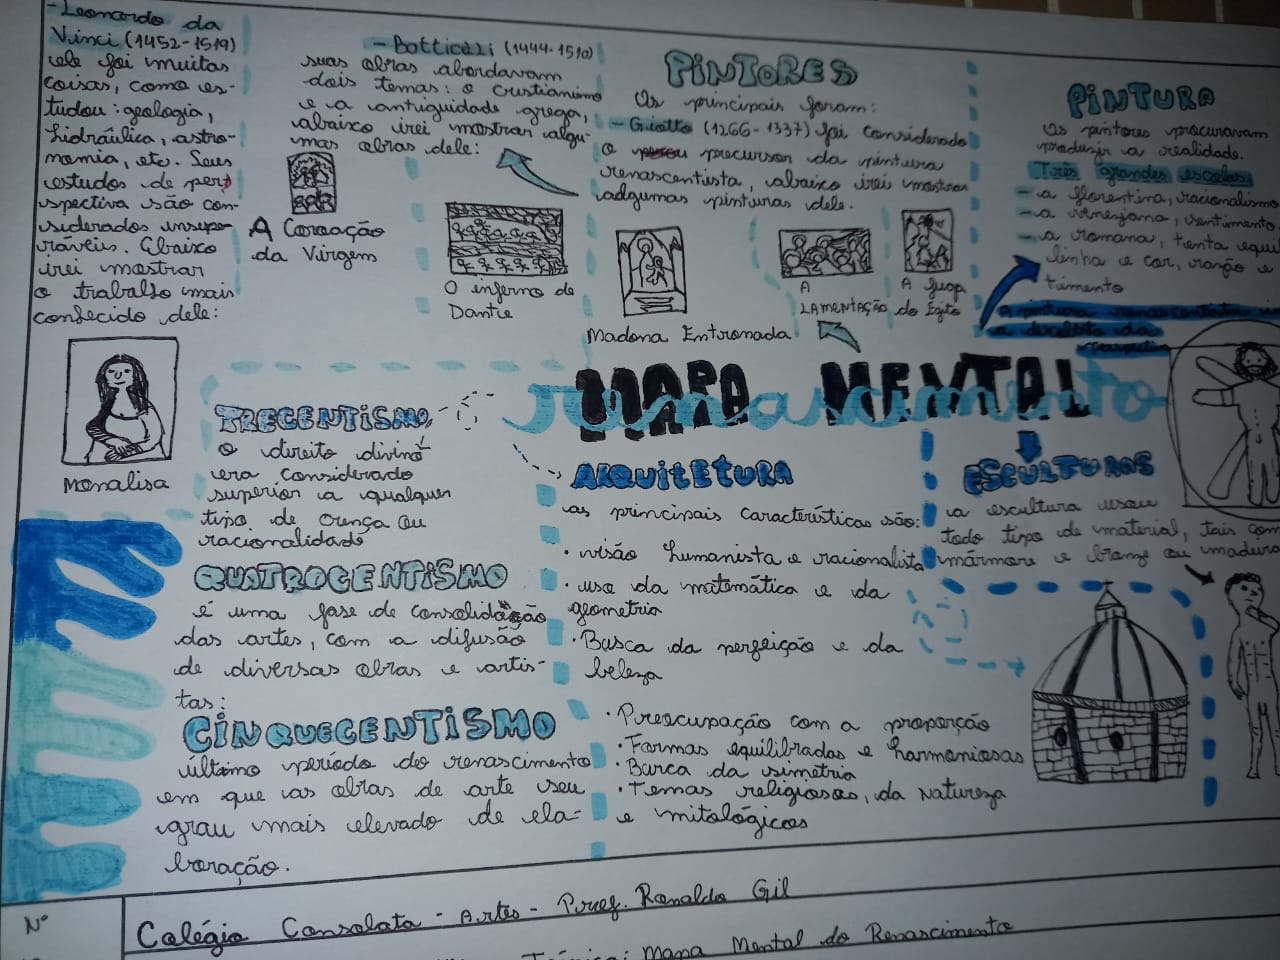 - Leonardo da
Vinci (1452-1519)
ele foi muitas
coisas, como es-
tudou: geologia,
hidráulica, astro-
nomia, etc. Seus
estudos de per
spectiva são con-
siderados insupe-
ráveis. Abaixo
irei mostrar
o trabalho mais
conhecido dele:
Monalisa
- Botticeli (1444-1510)
suas obras abordavam
dois temas: o cristianismo
e a antiguidade grega,
abaixo irei mostrar algu-
mas obras dele:
A Coroação
da Virgem
O inferno de
Dante
PINTORES
Os principais foram:
- Giotto (1266-1337) foi considerado
o precursor da pintura
renascentista, abaixo irei mostrar
adgumas pinturas dele.
Madona Entronada
A
LAMENTAÇÃO
A
do Egito
PINTURA
Os pintores procuravam
produzir a realidade.
Três grandes escolas:
- a florentina, racionalismo
- a veneziana, sentimento
- a romana, tenta equi
linha e cor, razão e
timento
a pintura renascentista
a descoberta da
perspectiva
MAPA MENTAL
renascimento
TRECENTISMO
o direito divino
era considerado
superior a qualquer
tipo de crença ou
racionalidade
QUATROCENTISMO
é uma fase de consolidação
das artes, com a difusão
de diversas obras e artis-
tas:
CINQUECENTISMO
último período do renascimento
em que as obras de arte seu
grau mais elevado de ela-
boração.
ARQUITETURA
as principais características são:
• visão humanista e racionalista
• uso da matemática e da
geometria
• Busca da perfeição e da
beleza
• Preocupação com a proporção
• Formas equilibradas e harmoniosas
• Busca da simetria
• Temas religiosos, da Natureza
e mitológicos
ESCULTURAS
a escultura usou
todo tipo de material, tais com
mármore e bronze ou madeira
Nº
Colégio Consolata - Artes - Prof. Ronaldo Gil
Técnica: Mapa Mental do Renascimento